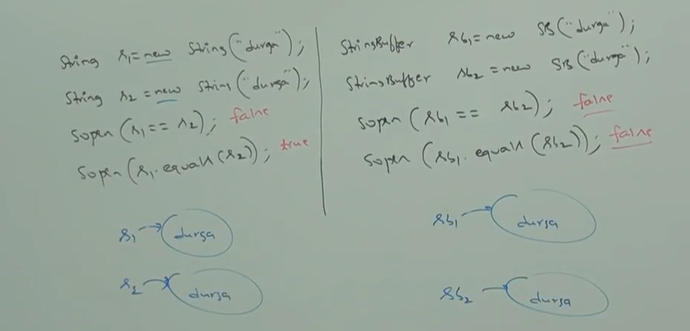 String s1=new String("durga");
String s2=new String("durga");
Sopln(s1==s2); false
Sopln(s1.equals(s2)); true
s1 durga
s2 durga
StringBuffer sb1=new SB("durga");
StringBuffer sb2=new SB("durga");
Sopln(sb1 == sb2); false
Sopln(sb1.equals(sb2)); false
sb1 durga
sb2 durga